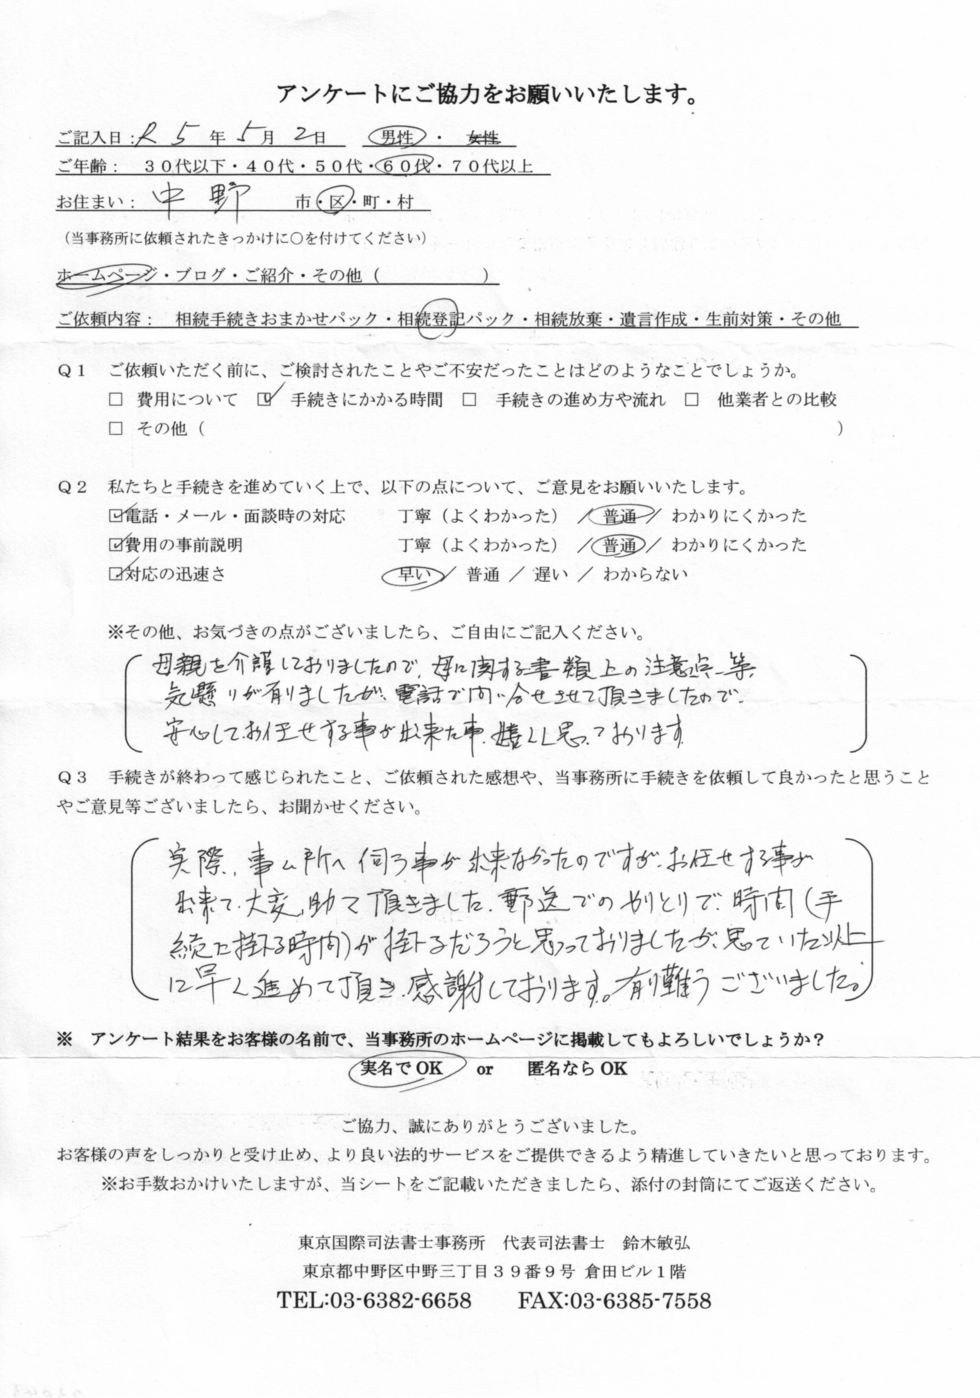 アンケートにご協力をお願いいたします。
ご記入日：R 5 年 5 月 2 日　男性 ・ 女性
ご年齢：　３０代以下・４０代・５０代・６０代・７０代以上
お住まい：　中野　市・区・町・村
（当事務所に依頼されたきっかけに○を付けてください）
ホームページ・ブログ・ご紹介・その他（　　　　　　）
ご依頼内容：　相続手続きおまかせパック・相続登記パック・相続放棄・遺言作成・生前対策・その他
Ｑ１　ご依頼いただく前に、ご検討されたことやご不安だったことはどのようなことでしょうか。
□　費用について　☑　手続きにかかる時間　□　手続きの進め方や流れ　□　他業者との比較
□　その他（　　　　　　　　　　　　　　　　　　　　）
Ｑ２　私たちと手続きを進めていく上で、以下の点について、ご意見をお願いいたします。
☑電話・メール・面談時の対応　　　丁寧（よくわかった）　／　普通　／　わかりにくかった
☑費用の事前説明　　　丁寧（よくわかった）　／　普通　／　わかりにくかった
☑対応の迅速さ　　　早い　／　普通　／　遅い　／　わからない
※その他、お気づきの点がございましたら、ご自由にご記入ください。
母親を介護しておりましたので、母に関する書類上の注意点等、
気懸りが有りましたが、電話で問い合せさせて頂きましたので、
安心してお任せする事が出来た事、嬉しく思っております
Ｑ３　手続きが終わって感じられたこと、ご依頼された感想や、当事務所に手続きを依頼して良かったと思うこと
やご意見等ございましたら、お聞かせください。
実際、事ム所へ伺う事が出来なかったのですが、お任せする事が
出来て、大変、助て頂きました、郵送でのやりとりで、時間（手
続に掛る時間）が掛るだろうと思っておりましたが、思っていた以上
に早く進めて頂き、感謝しております。有難うございました。
※　アンケート結果をお客様の名前で、当事務所のホームページに掲載してもよろしいでしょうか？
実名でOK　or　匿名ならOK
ご協力、誠にありがとうございました。
お客様の声をしっかりと受け止め、より良い法的サービスをご提供できるよう精進していきたいと思っております。
※お手数おかけいたしますが、当シートをご記載いただきましたら、添付の封筒にてご返送ください。
東京国際司法書士事務所　代表司法書士　鈴木敏弘
東京都中野区中野三丁目３９番９号 倉田ビル１階
TEL:03-6382-6658　　FAX:03-6385-7558